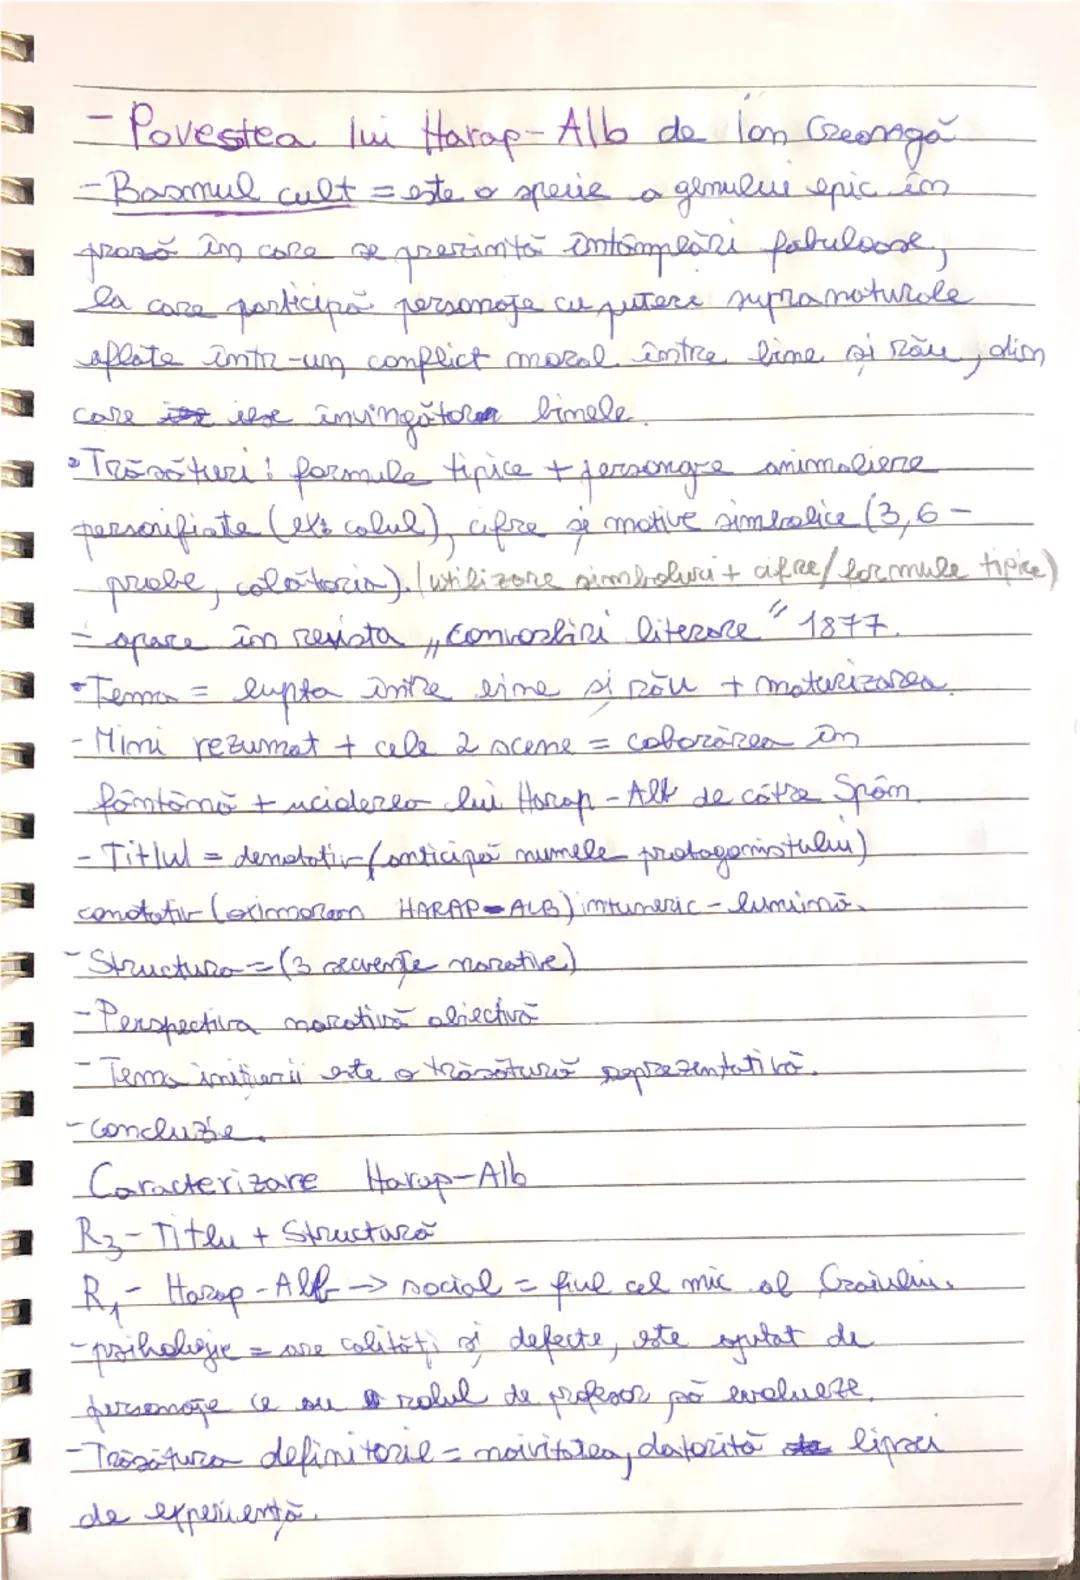 - Povestea lui Harap-Alb de Ion Creangă
- Basmul cult = este o specie a genului epic în
proză în care se prezintă întâmplări fabuloase,
la care participă personaje cu puteri supranaturale
aflate într-un conflict moral între bine și rău, din
care iese învingător binele.
• Trăsături: formule tipice + personaje animaliere
personifiate (ex: calul), cifre și motive simbolice (3, 6 -
probe, călătoria). (utilizare simboluri + cifre/formule tipice)
- apare în revista „Convorbiri literare" 1877.
• Tema = lupta între bine și rău + maturizarea.
- Mini rezumat + cele 2 scene = coborârea în
fântână + uciderea lui Harap-Alb de către Spân.
- Titlul = denotativ (anticipă numele protagonistului)
conotativ (oximoron HARAP-ALB) întuneric - lumină.
- Structura = (3 secvențe narative)
- Perspectiva narativă obiectivă
- Tema inițierii este o trăsătură reprezentativă.
- Concluzie.
Caracterizare Harap-Alb
R3 - Titlu + Structură
R1 - Harap-Alb → social = fiul cel mic al Craiului.
- psihologie = are calități și defecte, este ajutat de
personaje ce au rolul de profesor să evolueze.
- Trăsătura definitorie = naivitatea, datorită lipsei
de experiență.